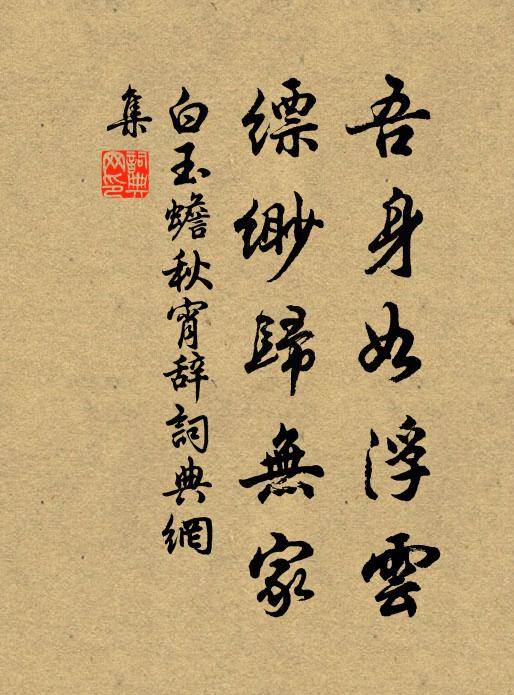 吾身如浮雲
縹緲歸無家
白玉蟾秋宵辭詞典網
集
詞典
网印